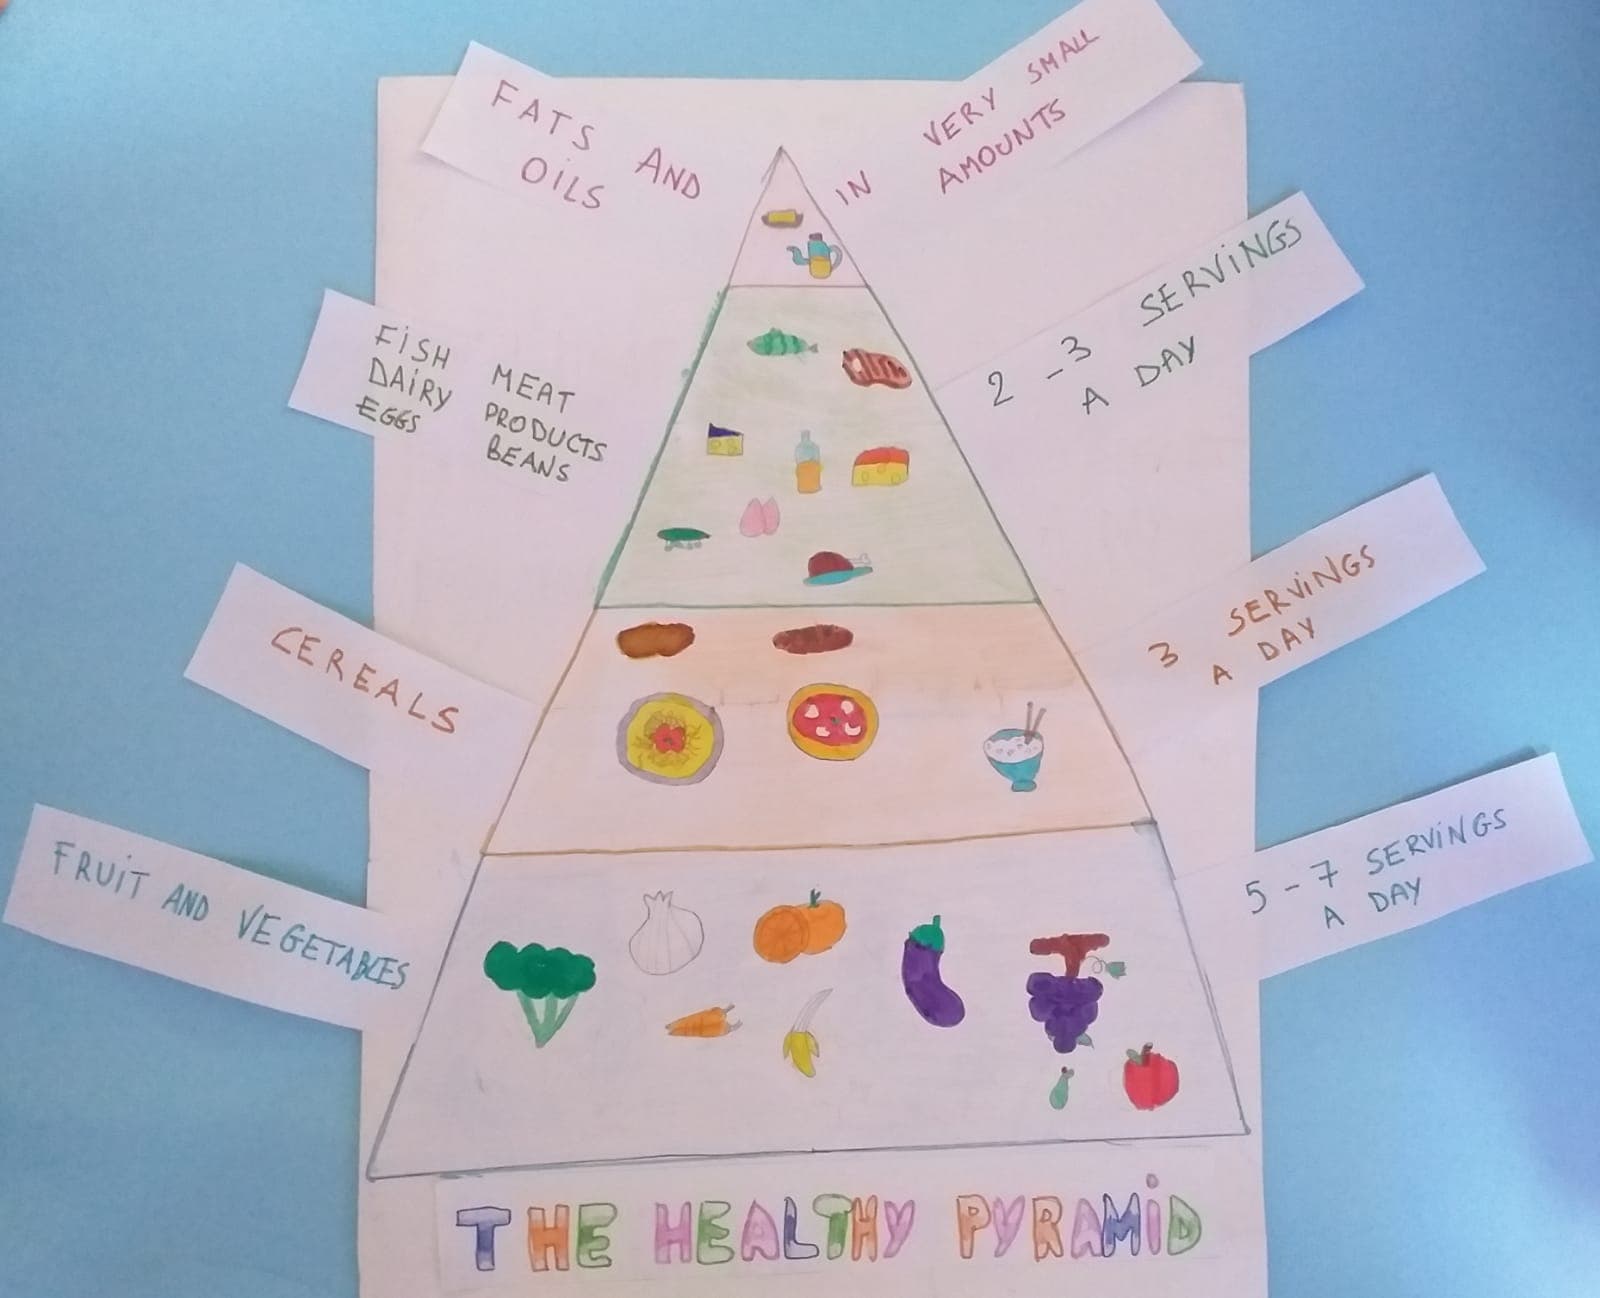 FATS AND
OILS
IN VERY SMALL
AMOUNTS
FISH MEAT
DAIRY PRODUCTS
EGGS BEANS
2-3 SERVINGS
A DAY
CEREALS
3 SERVINGS
A DAY
FRUIT AND VEGETABLES
5-7 SERVINGS
A DAY
THE HEALTHY PYRAMID